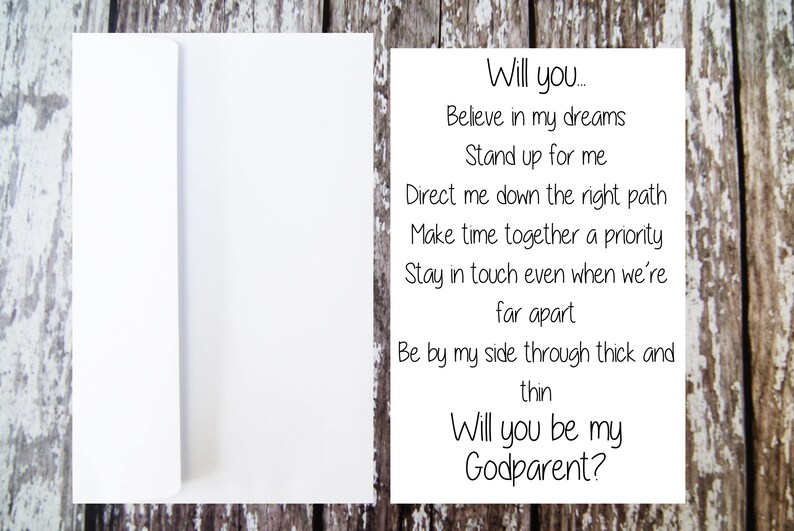 Will you...
Believe in my dreams
Stand up for me
Direct me down the right path
Make time together a priority
Stay in touch even when we're
far apart
Be by my side through thick and
thin
Will you be my
Godparent?